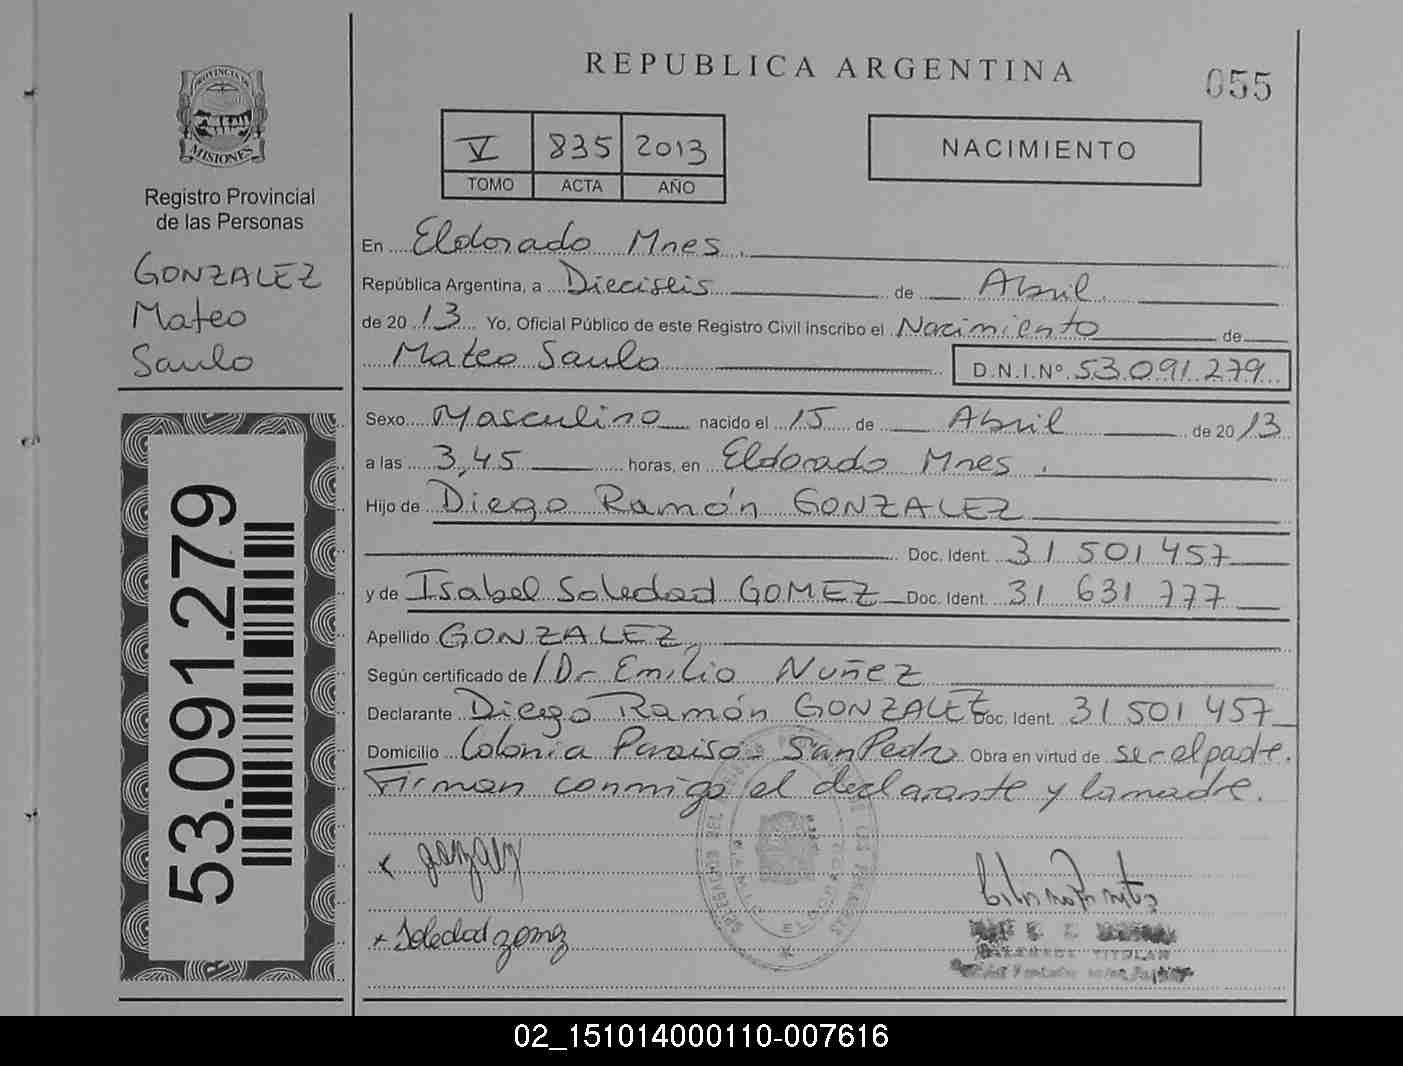 REPUBLICA ARGENTINA
055
PROVINCIA DE
MISIONES
Registro Provincial
de las Personas
GONZALEZ
Mateo
Saulo
V 835 2013
TOMO ACTA AÑO
NACIMIENTO
En Eldorado Mnes.
República Argentina, a Dieciseis de Abril
de 2013 Yo, Oficial Público de este Registro Civil inscribo el Nacimiento de
Mateo Saulo D.N.I.Nº 53.091.279
Sexo Masculino nacido el 15 de Abril de 2013
a las 3,45 horas, en Eldorado Mnes.
Hijo de Diego Ramón GONZALEZ
Doc. Ident. 31 501 457
y de Isabel Soledad GOMEZ Doc. Ident. 31 631 777
Apellido GONZALEZ
Según certificado de /Dr Emilio Nuñez
Declarante Diego Ramón GONZALEZ Doc. Ident. 31 501 457
Domicilio Colonia Paraiso San Pedro Obra en virtud de ser el padre.
Firman conmigo el declarante y la madre.
x gonzalez
x Soledad gomez
TITULAR
53.091.279
02_151014000110-007616